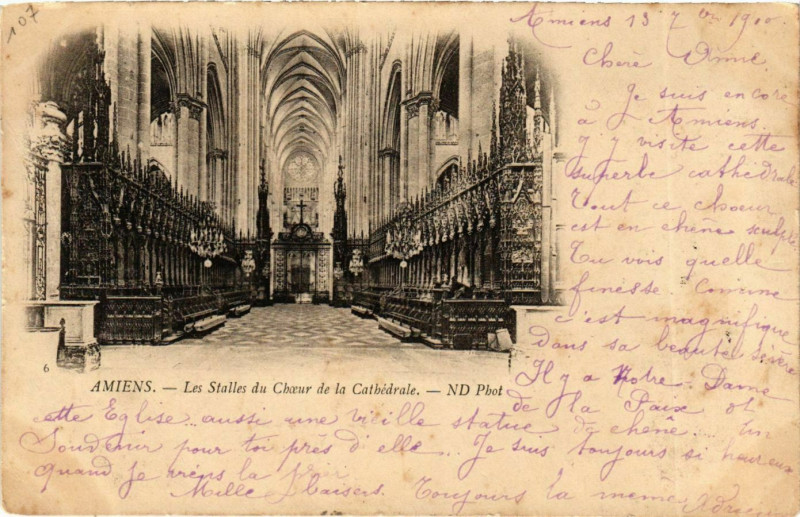 107
Amiens 13 7bre 1900
Chère Amie
Je suis encore
à Amiens
j'y visite cette
superbe cathédrale
Tout ce chœur
est en chêne sculpté
Tu vois quelle
finesse. Comme
c'est magnifique
dans sa beauté sévère
Il y a Notre-Dame
de la Paix et
6
AMIENS. — Les Stalles du Chœur de la Cathédrale. — ND Phot
cette Eglise... aussi une vieille statue de chêne... Un
Souvenir pour toi près d'elle... Je suis toujours si heureux
quand je viens la
Mille baisers. Toujours la même